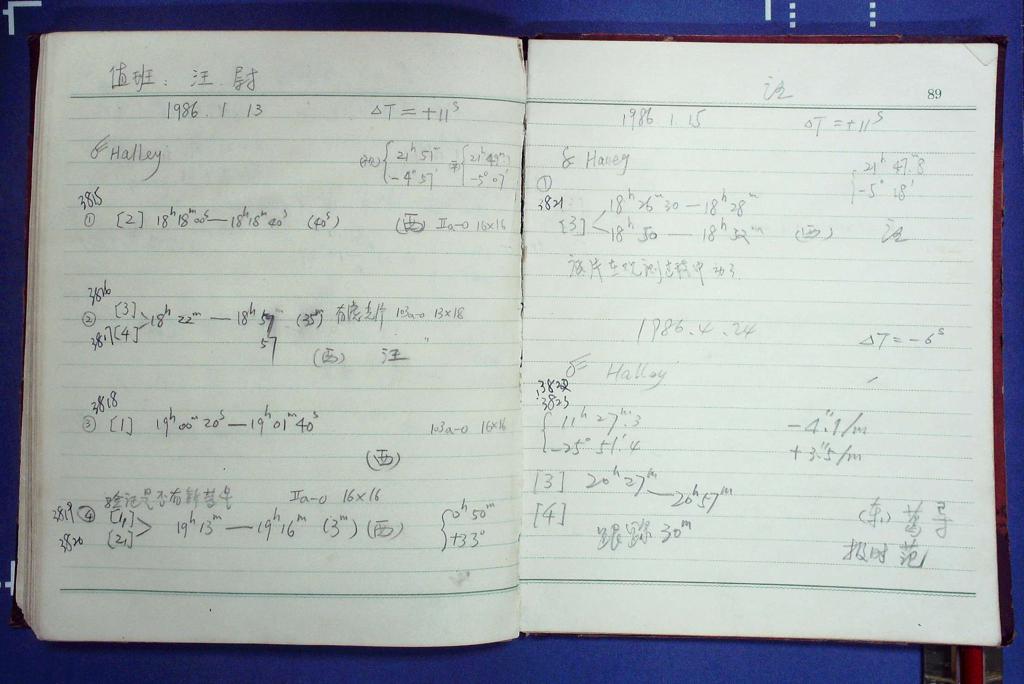 值班: 汪 尉
1986. 1. 13 ΔT = +11ˢ
Halley { 21ʰ 51ᵐ { 21ʰ 49ᵐ.
-4° 57′ -5° 07′
3815
① [2] 18ʰ18ᵐ00ˢ—18ʰ18ᵐ40ˢ (40ˢ) (西) IIa-0 16×16
3816
② [3] 18ʰ 22ᵐ — 18ʰ 57 (35ᵐ) 103a-0 13×18
3817 [4] 57
(西) 汪
3818
③ [1] 19ʰ00ᵐ20ˢ—19ʰ01ᵐ40ˢ 103a-0 16×16
(西)
验记是否有新警星 IIa-0 16×16
3819 ④ [1] 19ʰ13ᵐ—19ʰ16ᵐ (3ᵐ) (西) { 0ʰ 50ᵐ
3820 [2] +33°
汪 89
1986. 1. 15 ΔT = +11ˢ
Halley { 21ʰ 47ᵐ.8
① -5° 18′
3821 18ʰ26ᵐ30—18ʰ28ᵐ
[3] 18ʰ50—18ʰ52ᵐ (西) 汪
该片在观测过程中动了.
1986. 4. 24 ΔT = -6ˢ
Halley
3822
3823
{ 11ʰ 27ᵐ.3 -4″.1/m
-25° 51′.4 +3″.5/m
[3] 20ʰ27ᵐ—20ʰ57ᵐ
[4] 跟踪 30ᵐ (东)
报时 范